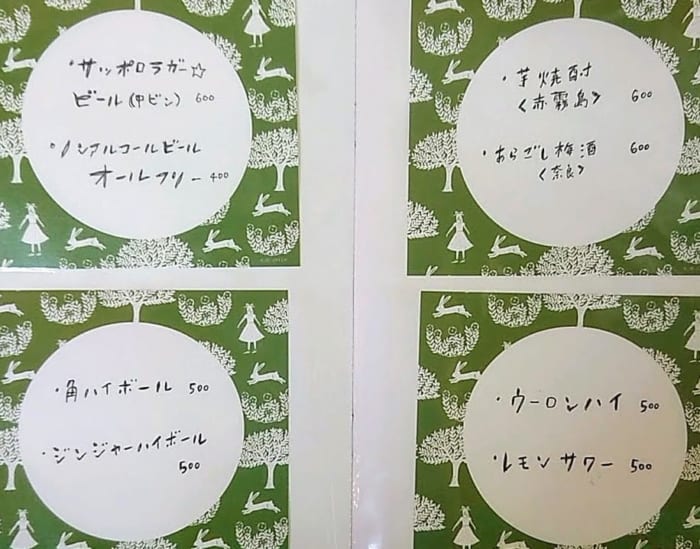 ・サッポロラガー☆
ビール(中ビン) 600
・ノンアルコールビール
オールフリー 400
・芋焼酎
〈赤霧島〉 600
・あらごし梅酒 600
〈奈良〉
・角ハイボール 500
・ジンジャーハイボール
500
・ウーロンハイ 500
・レモンサワー 500